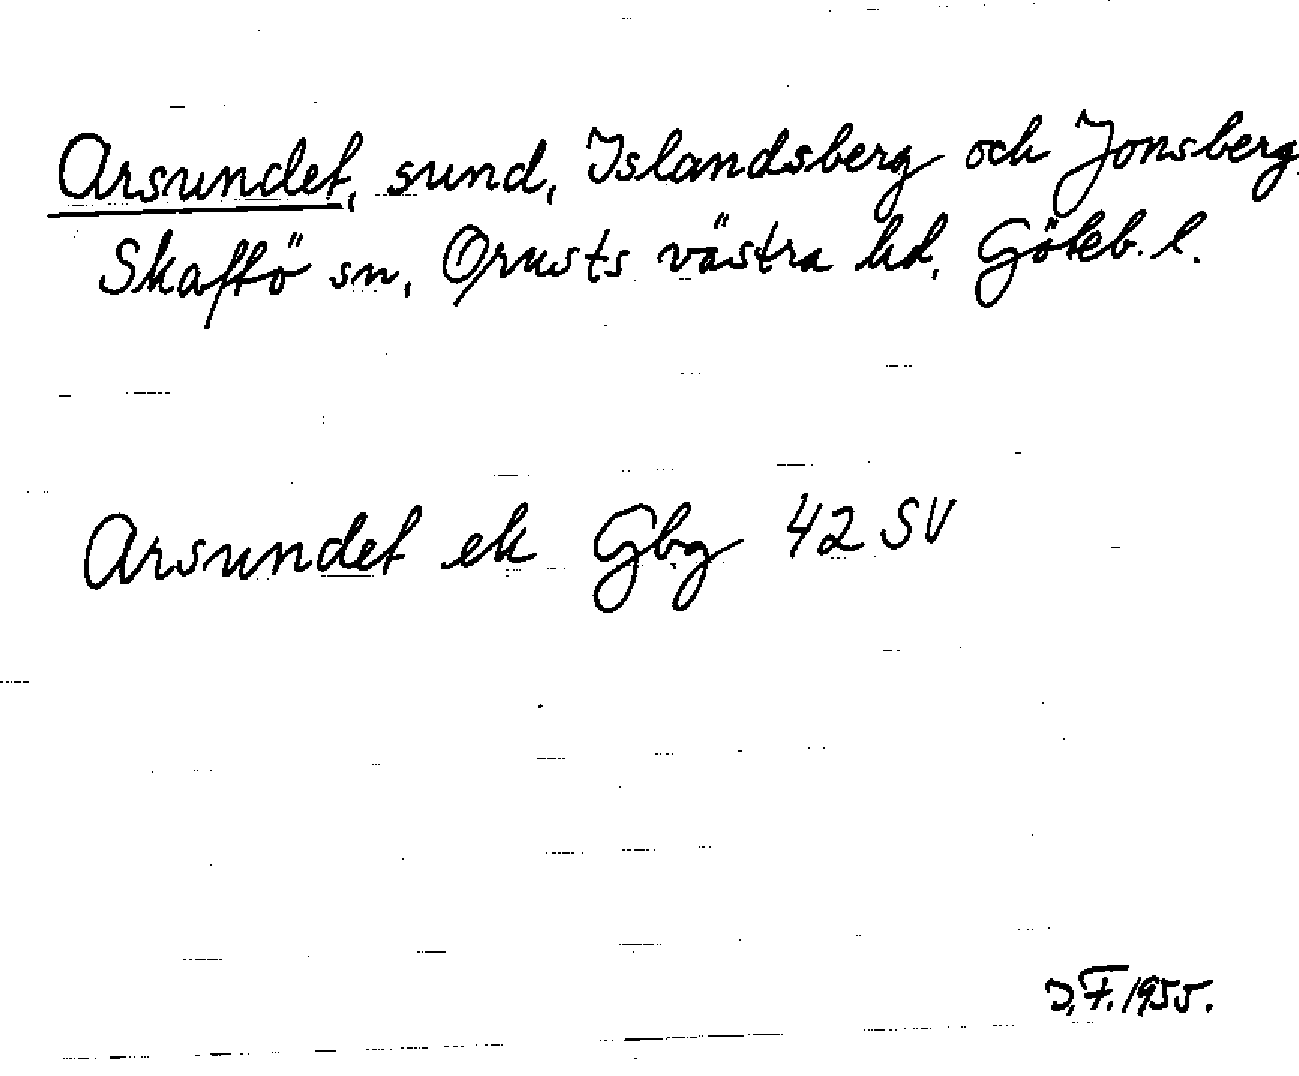 Arsundet, sund, Islandsberg och Jonsberg,
Skaftö sn, Orusts västra hd, Göteb. l.
Arsundet ek Gbg 42 SV
J.F. 1955.